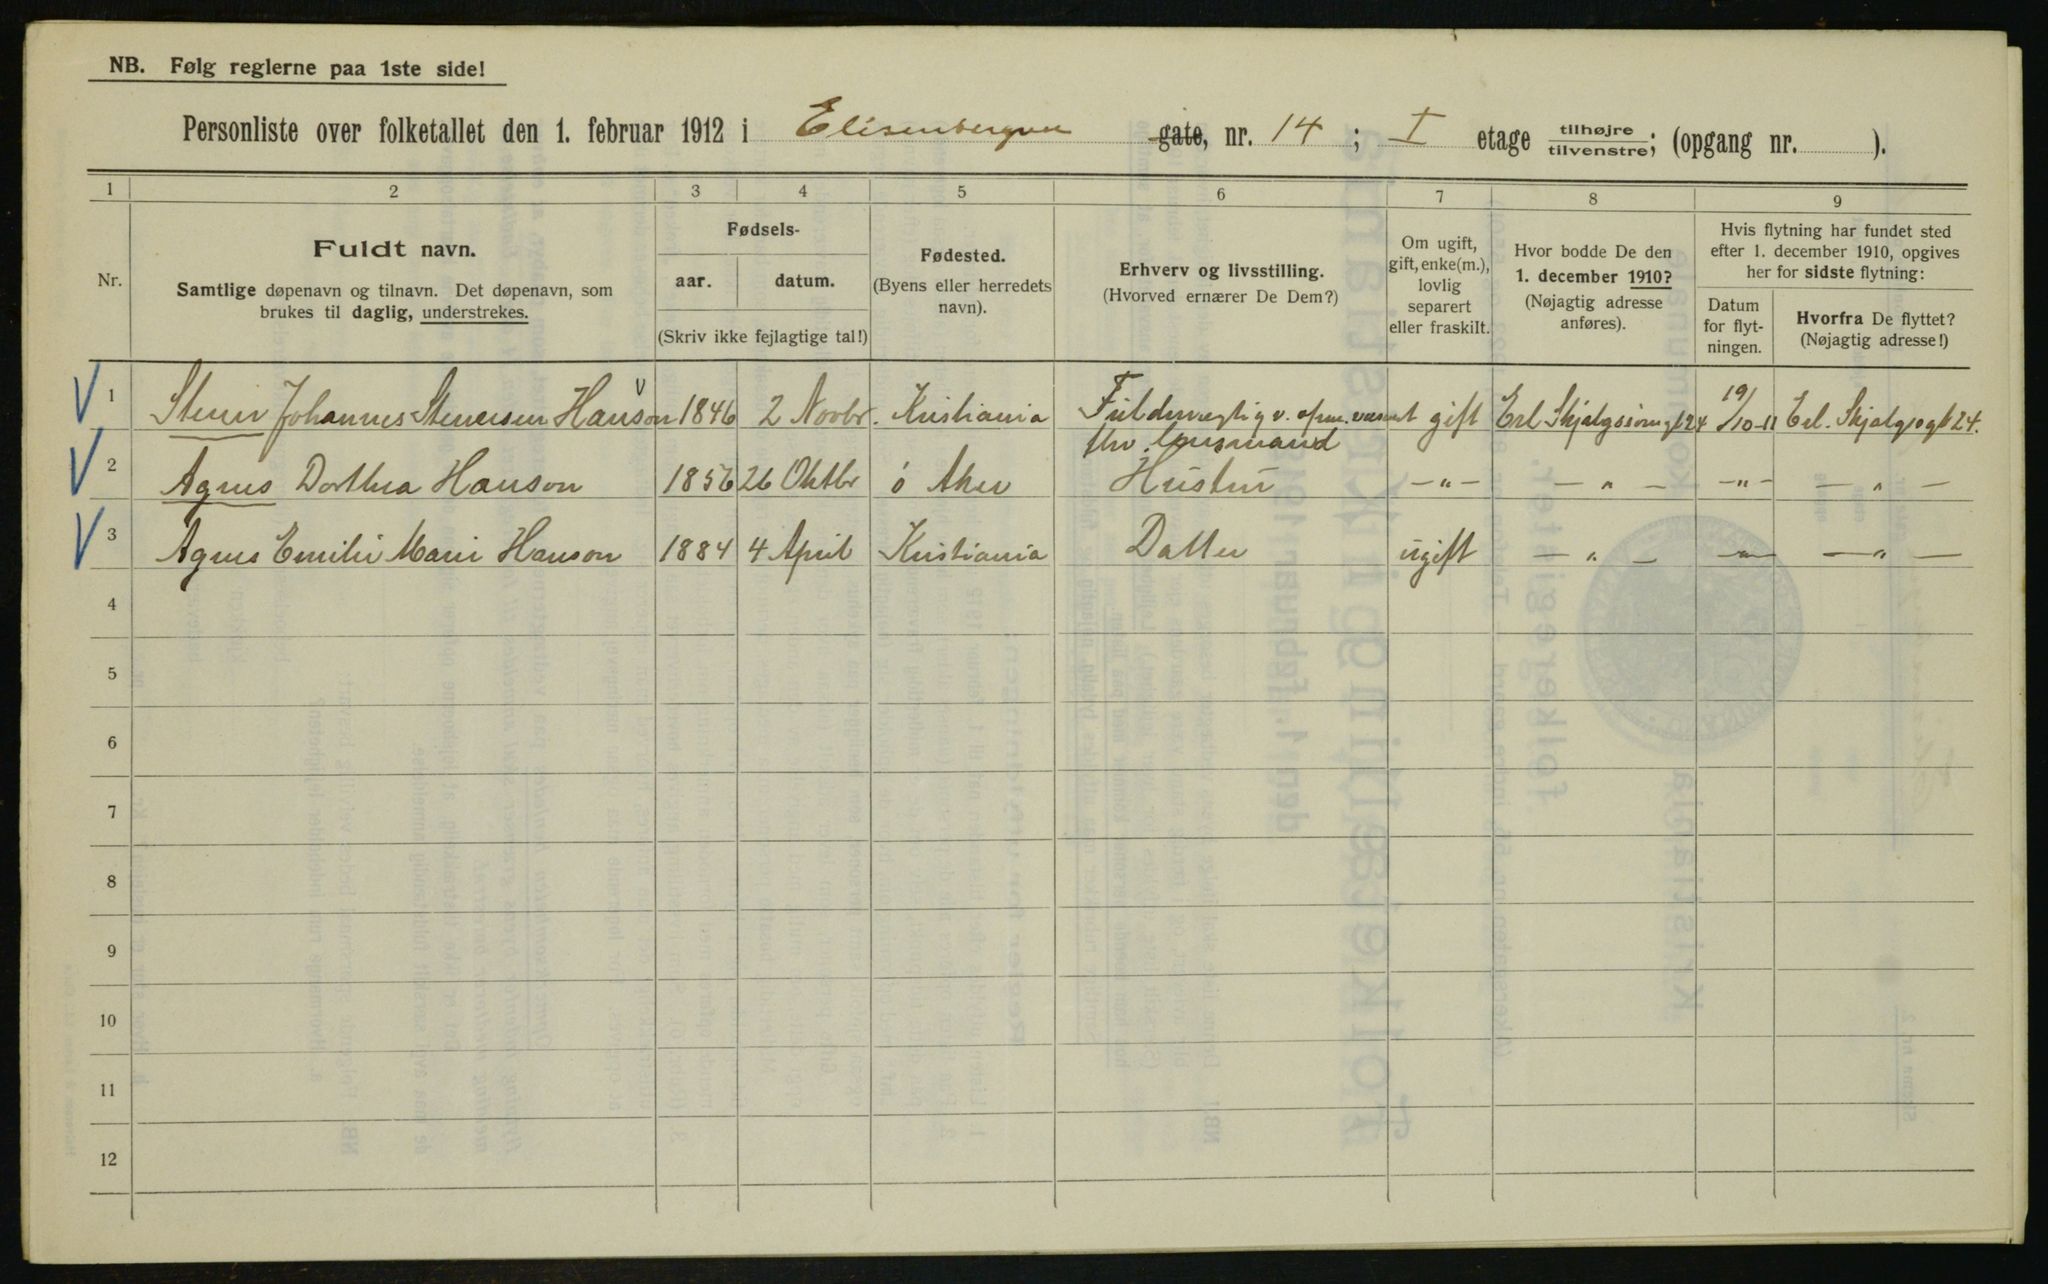 NB. Følg reglerne paa 1ste side!
Personliste over folketallet den 1. februar 1912 i Elisenbergvei gate, nr. 14 ; I etage tilhøjre tilvenstre; (opgang nr. ).
1 2 3 4 5 6 7 8 9
Nr.
Fuldt navn.
Samtlige døpenavn og tilnavn. Det døpenavn, som
brukes til daglig, understrekes.
Fødsels-
aar. datum.
(Skriv ikke fejlagtige tal!)
Fødested.
(Byens eller herredets
navn).
Erhverv og livsstilling.
(Hvorved ernærer De Dem?)
Om ugift,
gift, enke(m.),
lovlig
separert
eller fraskilt.
Hvor bodde De den
1. december 1910?
(Nøjagtig adresse
anføres).
Hvis flytning har fundet sted
efter 1. december 1910, opgives
her for sidste flytning:
Datum
for flyt-
ningen.
Hvorfra De flyttet?
(Nøjagtig adresse!)
1 Johannes Stenersen Hanson 1846 2 Novbr. Kristiania gift Erl Skjalgssøns gt 24 19/10-11 Erl. Skjalgs gt 24.
2 Agnes Dorthea Hanson 1856 26 Oktbr ö Aker Hustru —„— — „ — —„— — „ —
3 Agnes Emilie Marie Hanson 1884 4 April Kristiania Datter ugift — „ — —„— — „ —
4
5
6
7
8
9
10
11
12